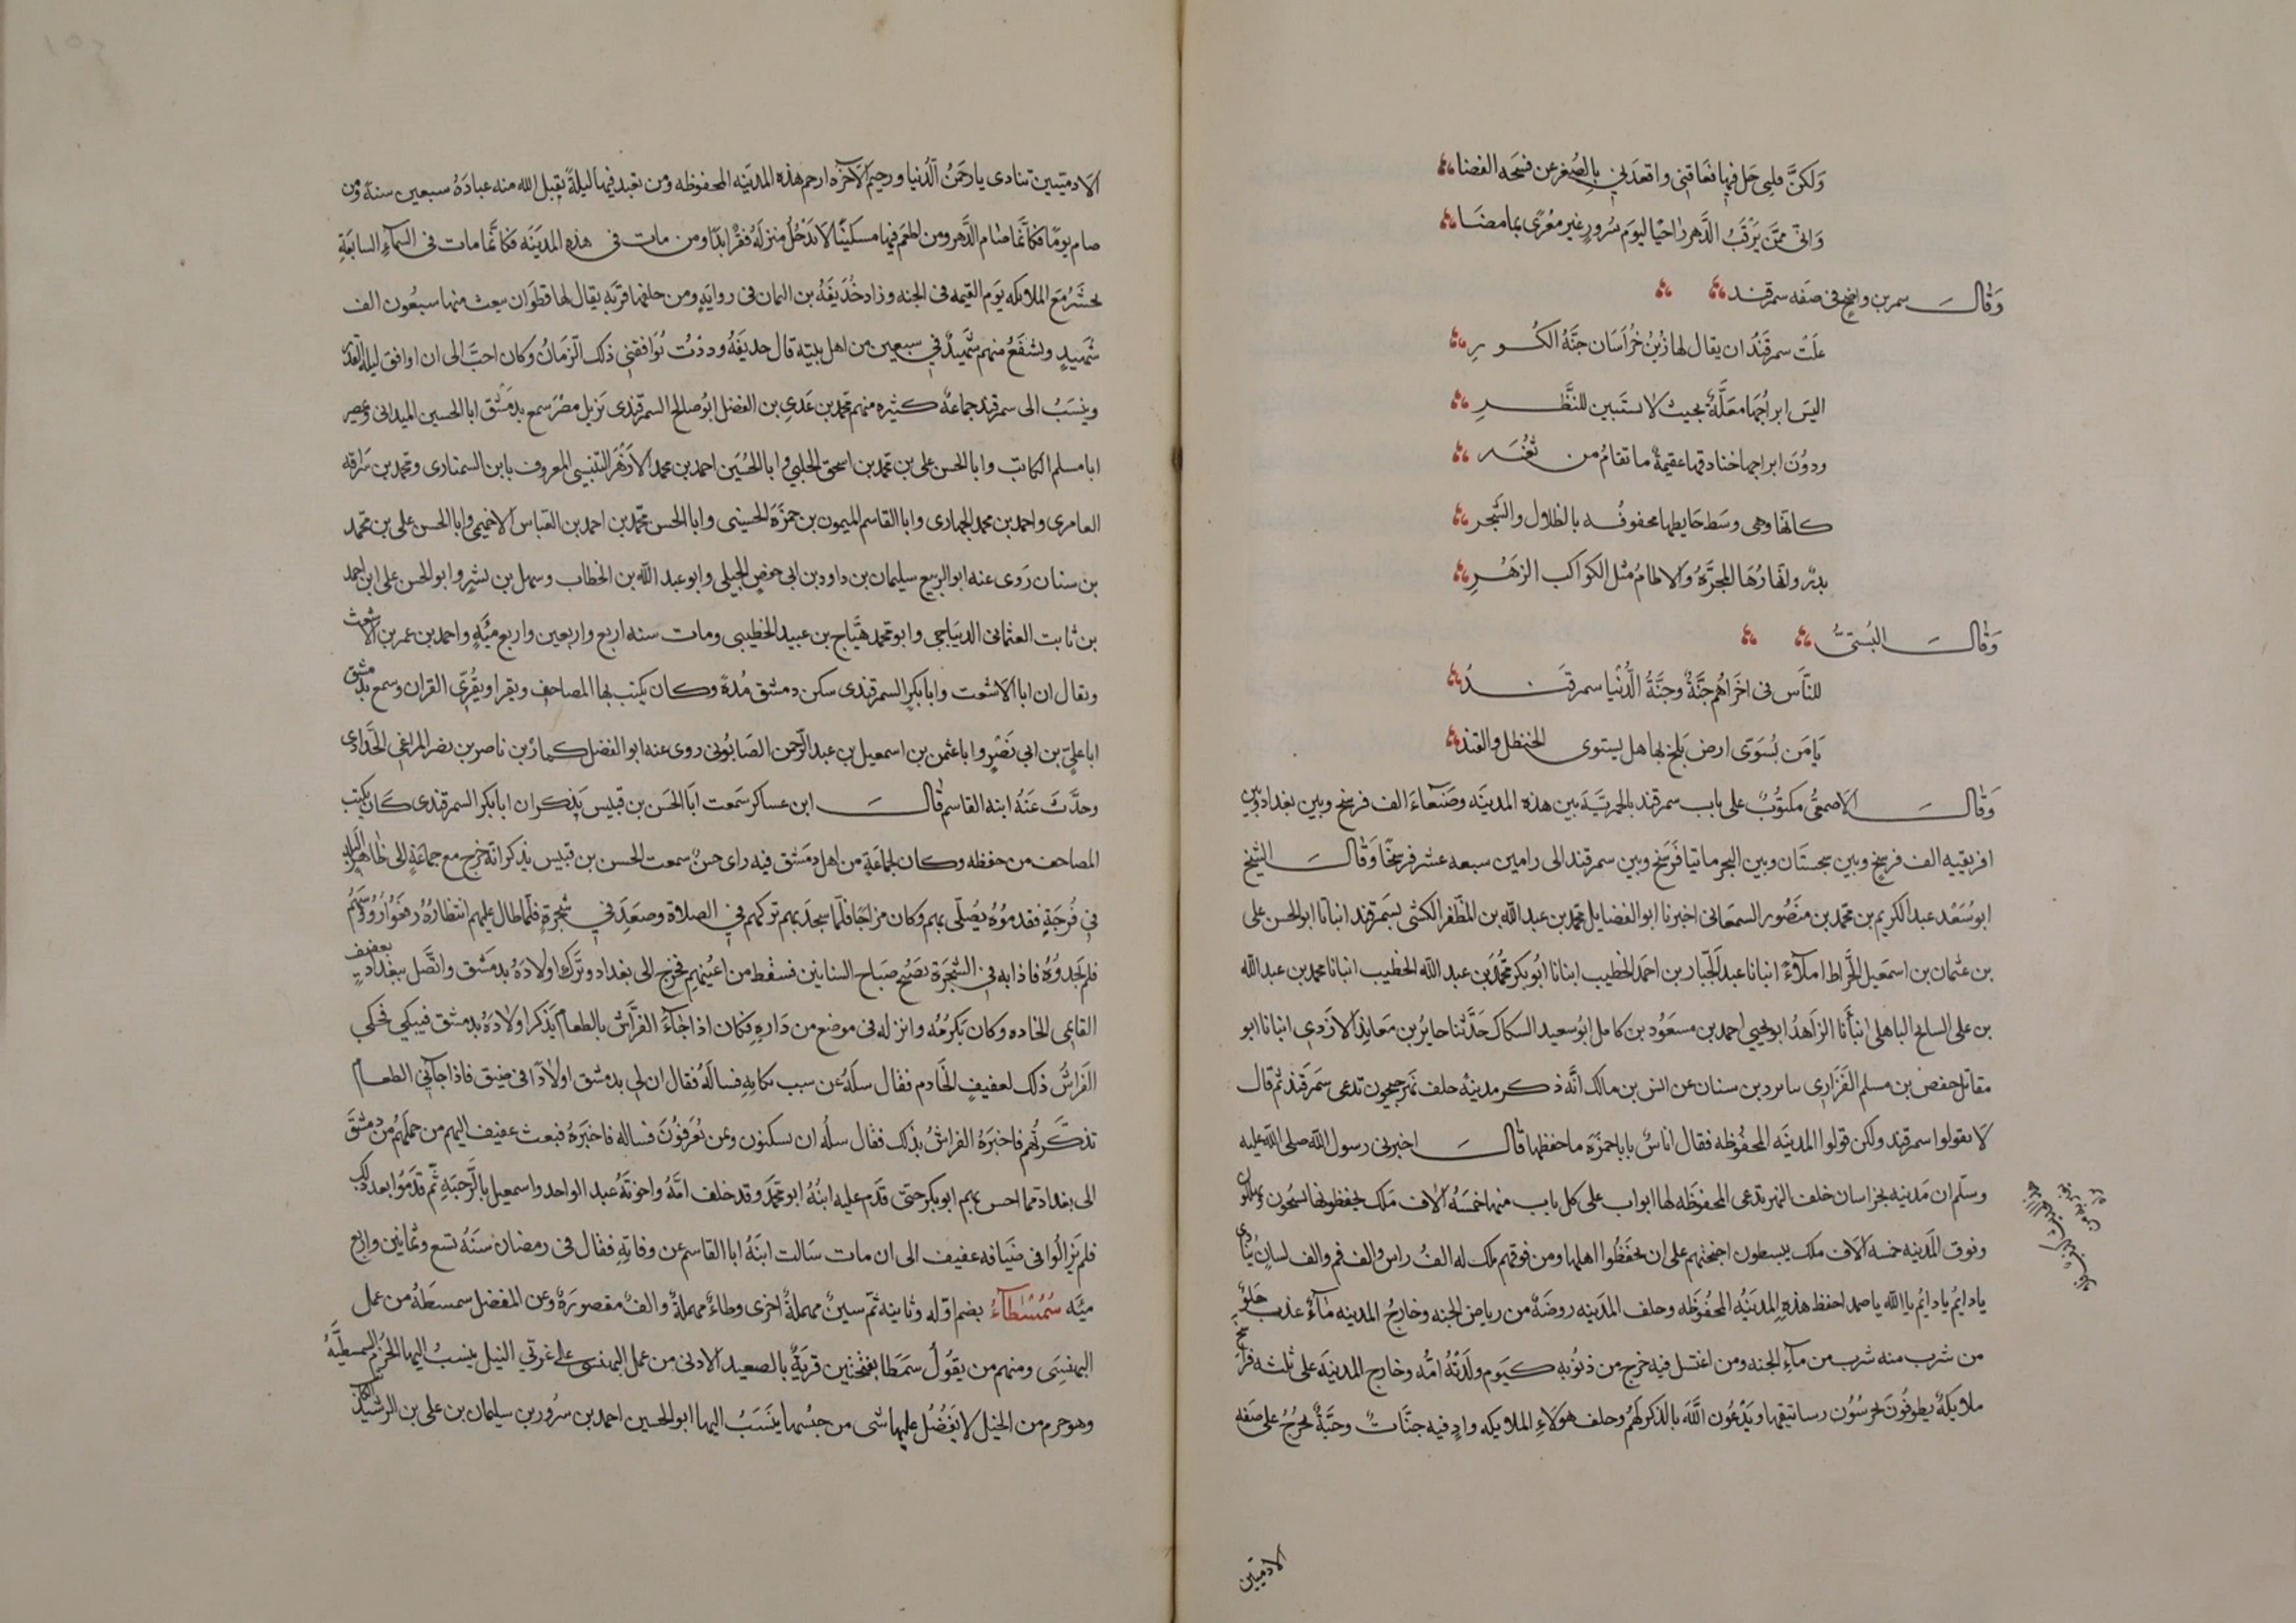 ولكنّ قلبى حل فيها فعاقنى واقعدنى بالصغر عن فسحه الفضا
وانى ممن يرقب الدهر راجيا ليوم سرور غير مغرى بما مضا
وقال سمرىن واضح فى صفه سمرقند
علت سمرقند ان يقال لها زين خراسان جنة الكور
اليس ابراجها معلّقة بحيث لا ستبين للنظر
ودون ابراجها خنادقها عميقة ما تقام من ثغر
كانّها وهى وسط حايطها محفوفه بالظلال والشجر
بدر وانهارها المجرّة والاطام مثل الكواكب الزهر
وقال البُستىُّ
للنّاس فى اخراهم جنّة وجنّة الدّنيا سمرقند
يا من يسوى ارض بلخ بها هل يستوى الحنظل والقند
وقال الاصمعىّ مكتوب على باب سمرقند بالحميريّة بين هذه المدينه وصنعاء الف فرسخ وبين بغداد وبين
افريقيه الف فرسخ وبين سجستان وبين البحر مائتا فرسخ وبين سمرقند الى رامين سبعه عشر فرسخا وقال الشيخ
ابو سعد عبد الكريم بن محمد بن منصور السمعانى اخبرنا ابو الفضايل محمد بن عبد الله بن المظفر الكشى بسمرقند انبانا ابو الحسن على
بن عثمان بن اسمعيل الخراط املاءً انبانا عبد الجبّار بن احمد الخطيب انبانا ابو بكر محمد بن عبد الله الخطيب انبانا محمد بن عبد الله
بن على السايح الباهلى انبأنا الزاهد ابو يحيى احمد بن مسعود بن كامل ابو سعيد السكاك حدّثنا حاير بن معاذ الازدى انبانا ابو
مقاتل حفص بن مسلم الفزارى سابرد بن سنان عن انس بن مالك انّه ذكر مدينة خلف نهر جيحون تدعى سمرقند ثم قال
لا تقولوا سمرقند ولكن قولوا المدينه المحفوظه فقال اناس يابا حمزة ما حفظها قال اخبرنى رسول الله صلى الله عليه
وسلم ان مدينه بخراسان خلف النهر تدعى المحفوظه لها ابواب على كل باب منها خمسه الاف ملك يحفظونها يسبّحون ويهللون
وفوق المدينه خمسه الاف ملك يبسطون اجنحتهم على ان يحفظوا اهلها ومن فوقهم ملك له الف راس والف فم والف لسان ينادى
يا دايم يا دايم يا الله يا صمد احفظ هذه المدينه المحفوظه وخلف المدينه روضة من رياض الجنه وخارج المدينه ماء عذب حلو
من شرب منه شرب من ماء الجنه ومن اغتسل فيه خرج من ذنوبه كيوم ولدته امّه وخارج المدينه على ثلثه فراسخ
ملايكة يطوفون يحرسون رساتيقها ويدعون الله بالذكر لهم وخلف هولاء الملايكه واد فيه حيّات وحيّة تخرج على صفه
الادميين
الادميين تنادى يا رحمن الدنيا ورحيم الاخره ارحم هذه المدينه المحفوظه ومن تعبد فيها ليلة يقبل الله منه عبادة سبعين سنة ومن
صام يوما فكانّما صام الدّهر ومن اطعم فيها مسكينا لا يدخل منزله فقر ابدا ومن مات فى هذه المدينه فكانّما مات فى السماء السابعة
يحشر مع الملايكه يوم القيمه فى الجنه وزاد حذيفة بن اليمان فى رواية ومن خلفها قرية يقال لها قطوان يبعث منها سبعون الف
شهيد ويشفع منهم شهيد فى سبعين من اهل بيته قال حذيفه وددت توافقنى ذلك الزمان وكان احبّ الى ان اوافق ليلة القدر
وينسب الى سمرقند جماعة كثيره منهم محمد بن عدى بن الفضل ابو صالح السمرقندى نزيل مصر سمع بدمشق ابا الحسين الميدانى وبمصر
ابا مسلم الكاتب وابا الحسن على بن محمد بن اسحق الحلبى وابا الحسين احمد بن محمد الازهر التنيسى المعروف بابن السمناوى ومحمد بن سراقه
العامرى واحمد بن محمد الجهازى وابا القاسم الميمون بن حمزة الحسينى وابا الحسن محمد بن احمد بن العباس الاخميمى وابا الحسن على بن محمد
بن سنان روى عنه ابو الربيع سليمان بن داود بن ابى حفص الجبلى وابو عبد الله بن الخطاب وسهل بن بشر وابو الحسن على ابن احمد
بن ثابت العثمانى الديباجى وابو محمد هيّاج بن عبيد الخطيبى ومات سنه اربع واربعين واربع مئة واحمد بن عمر بن الاشعث
ويقال ان ابا الاشعت وابا بكر السمرقندى سكن دمشق مدة وكان يكتب بها المصاحف ويقرا ويقرئ القران وسمع بدمشق
ابا علىّ بن ابى نصر وابا عثمن بن اسمعيل بن عبد الرحمن الصابونى روى عنه ابو الفضل كماز بن ناصر بن نصر المراغى الحدادى
وحدّث عنه ابنه القاسم قال ابن عساكر سمعت ابا الحسن بن قبيس يذكر ان ابا بكر السمرقندى كان يكتب
المصاحف من حفظه وكان لجماعة من اهل دمشق فيه راى حسن سمعت الحسن بن قبيس يذكر انه خرج مع جماعة الى ظاهر البلد
فى فرجة فقدموه يصلّى بهم وكان مزاحا فلما سجد بهم تركهم فى الصلاة وصعد فى شجرة فلما طال عليهم انتظاره رفعوا رؤوسهم
فلم يجدوه فاذا به فى الشجرة يصيح صياح السنانير فسقط من اعينهم فخرج الى بغداد وترك اولاده بدمشق واتّصل ببغداد بعفيف
القايمى الخادم وكان يكرمه وانزله فى موضع من داره فكان اذا جاءه الفرّاش بالطعام يذكر اولاده بدمشق فيبكى فحكى
الفراش ذلك لعفيف الخادم فقال سله عن سبب بكايه فساله فقال ان لى بدمشق اولادا فى ضيق فاذا جاءنى الطعام
تذكّرتهم فاخبره الفراش بذلك فقال سله ان يسكنون وبمن يعرفون فساله فاخبره فبعث عفيف اليهم من حملهم من دمشق
الى بغداد فما احس بهم ابو بكر حتى قدم عليه ابنه ابو محمد وقد خلف امّه واخوته عبد الواحد واسمعيل بالرحبة ثم قدموا بعد ذلك
فلم يزالوا فى ضيافه عفيف الى ان مات سالت ابنه ابا القاسم عن وفاته فقال فى رمضان سنة تسع وثمانين واربع
ميّه سُمُسْطاءُ بضم اوّله وثانيه ثم سين مهملة اخرى وطاء مهملة والف مقصورة وعن المفضل سمسطه من عمل
البهنسى ومنهم من يقول سمسطا بفتحتين قرية بالصعيد الادنى من عمل البهنسى على غربى النيل ينسب اليها الحزم السمسطيّه
وهو حرم من الخيل لا يفضل عليها شى من جنسها ينسب اليها ابو الحسين احمد بن سرور بن سليمان بن على بن الرشيد الكاتب